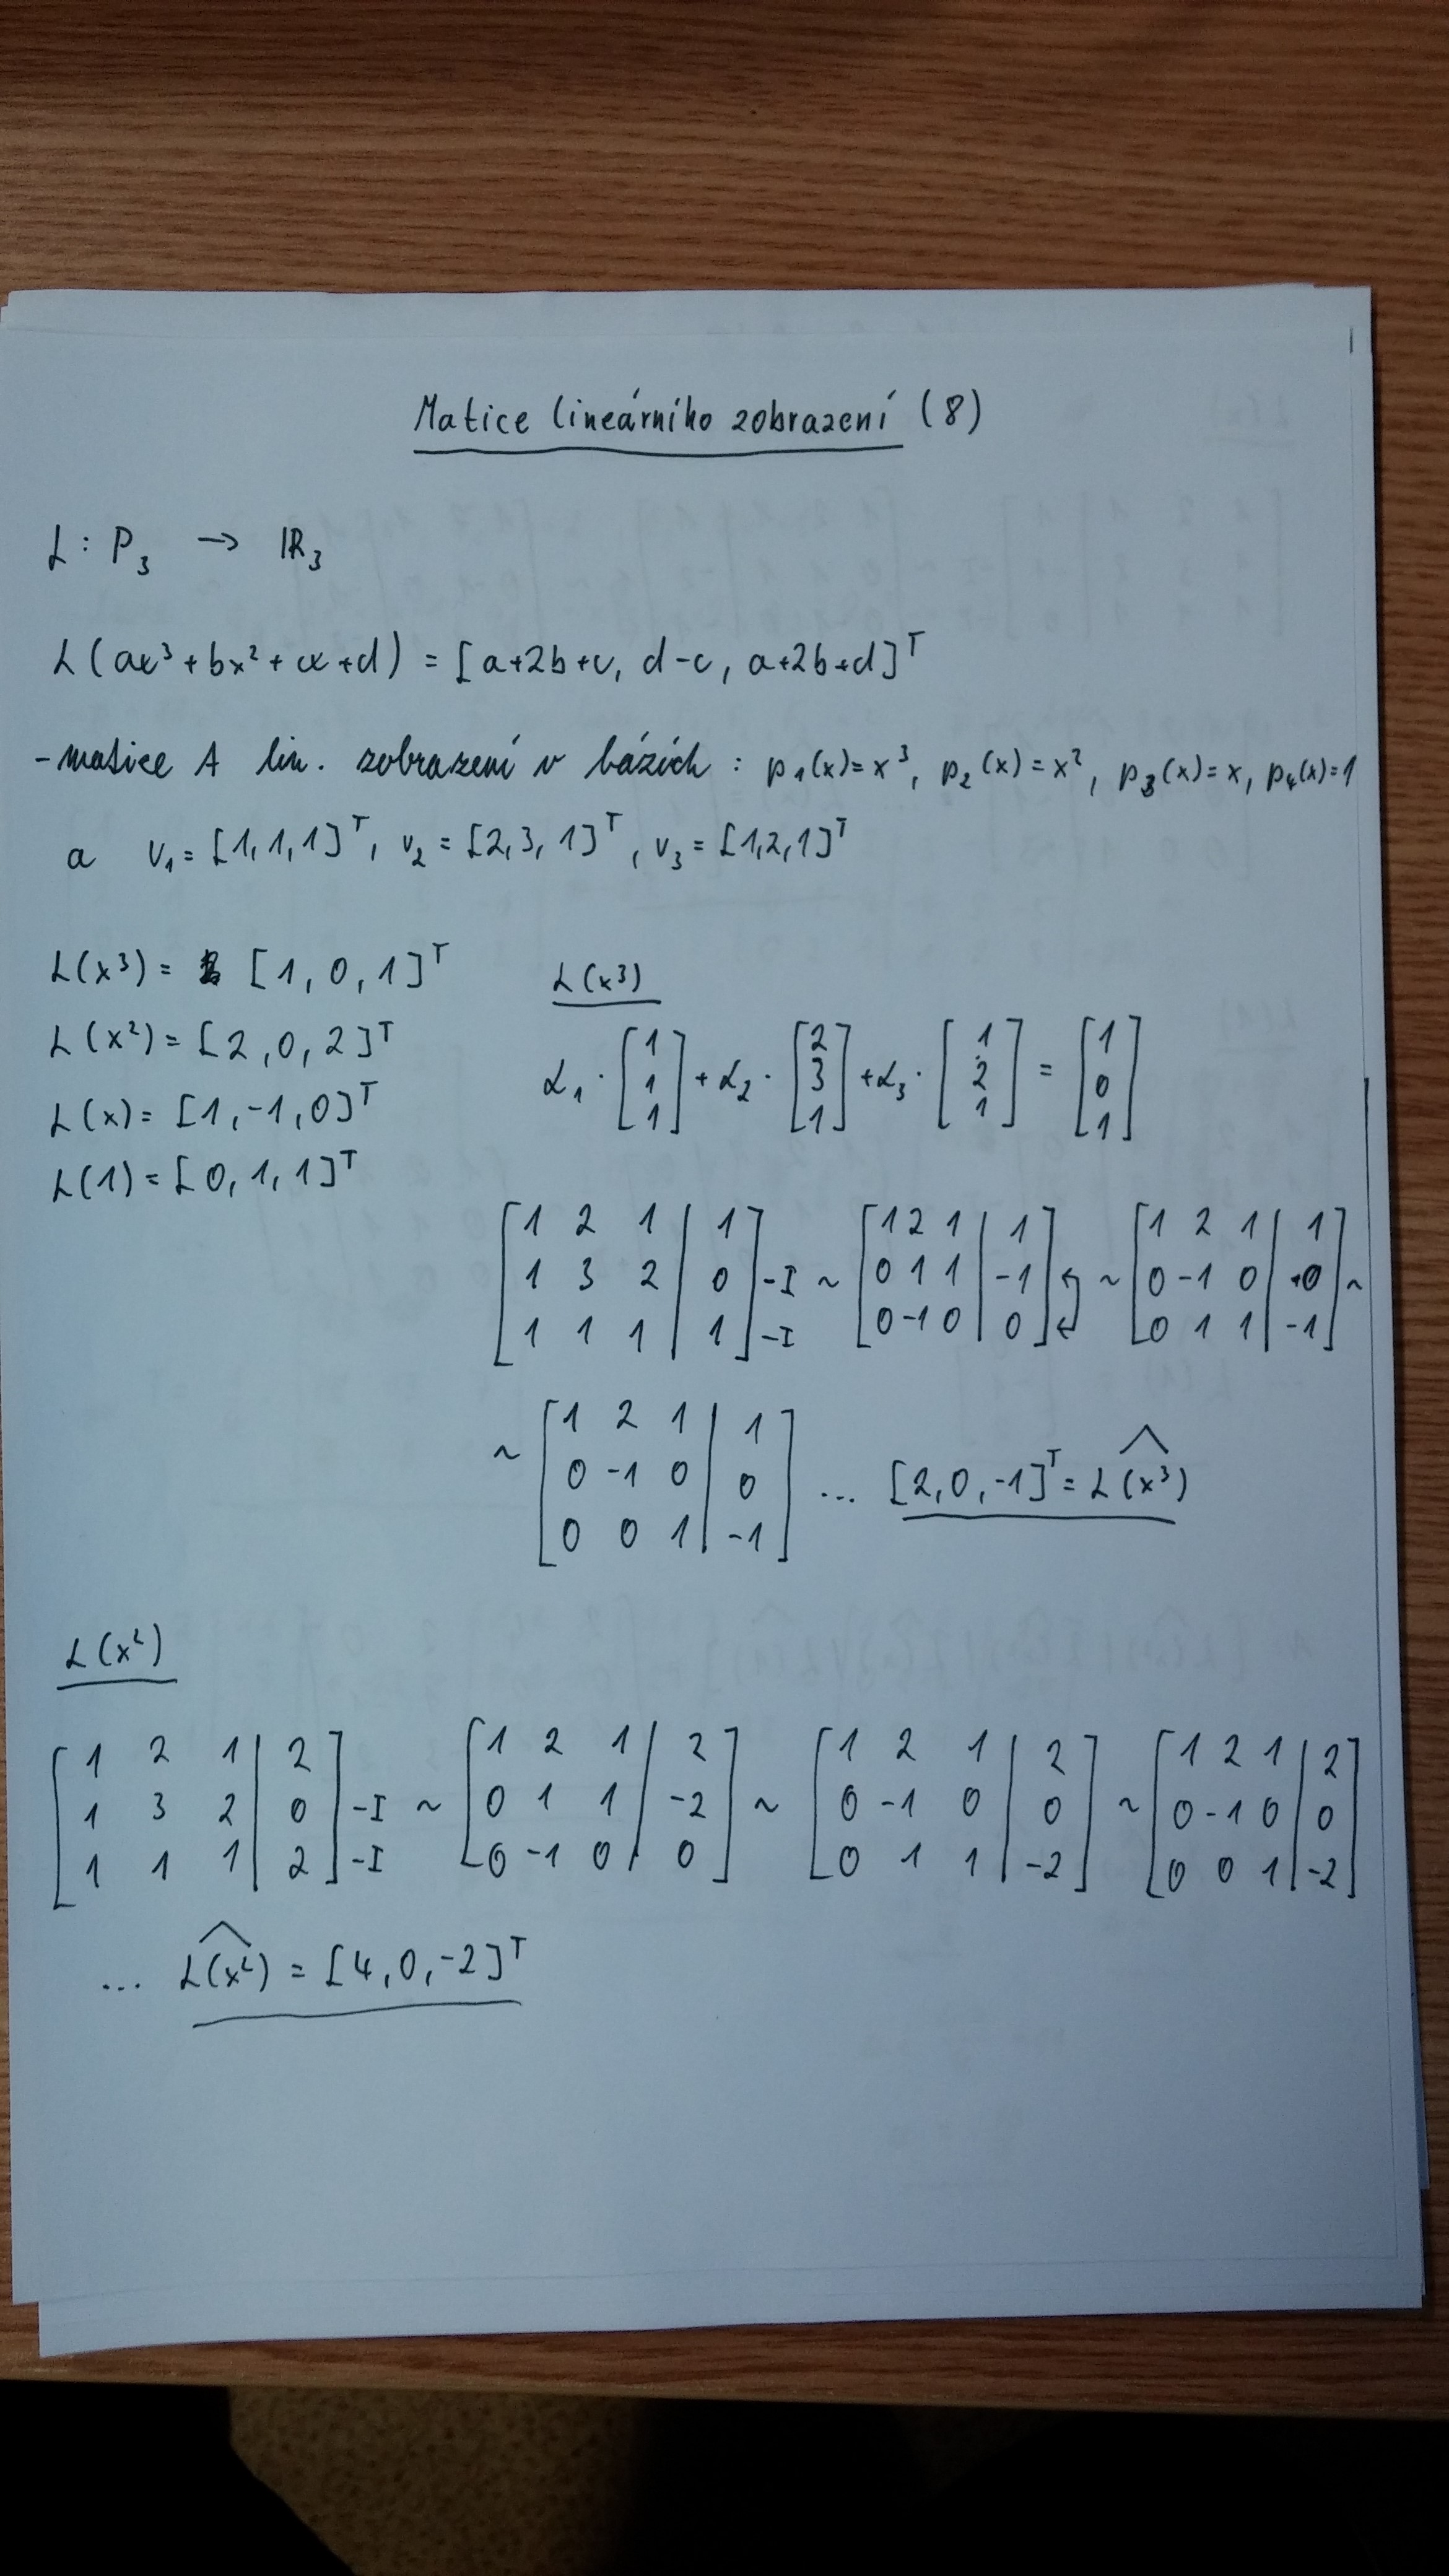 Matice lineárního zobrazení (8)
L : P₃ → ℝ₃
L(ax³+bx²+cx+d) = [a+2b+c, d-c, a+2b+d]ᵀ
- matice A lin. zobrazení v bázích : p₁(x)=x³, p₂(x)=x², p₃(x)=x, p₄(x)=1
a v₁=[1,1,1]ᵀ, v₂=[2,3,1]ᵀ, v₃=[1,2,1]ᵀ
L(x³) = [1,0,1]ᵀ
L(x²) = [2,0,2]ᵀ
L(x) = [1,-1,0]ᵀ
L(1) = [0,1,1]ᵀ
L(x³)
α₁·[1 1 1] + α₂·[2 3 1] + α₃·[1 2 1] = [1 0 1]
[1 2 1 | 1] [1 2 1 | 1] [1 2 1 | 1]
[1 3 2 | 0] -I ~ [0 1 1 | -1] ~ [0 -1 0 | +0] ~
[1 1 1 | 1] -I [0 -1 0 | 0] [0 1 1 | -1]
[1 2 1 | 1]
~ [0 -1 0 | 0] ... [2,0,-1]ᵀ = L(x³)^
[0 0 1 | -1]
L(x²)
[1 2 1 | 2] [1 2 1 | 2] [1 2 1 | 2] [1 2 1 | 2]
[1 3 2 | 0] -I ~ [0 1 1 | -2] ~ [0 -1 0 | 0] ~ [0 -1 0 | 0]
[1 1 1 | 2] -I [0 -1 0 | 0] [0 1 1 | -2] [0 0 1 | -2]
... L(x²)^ = [4,0,-2]ᵀ